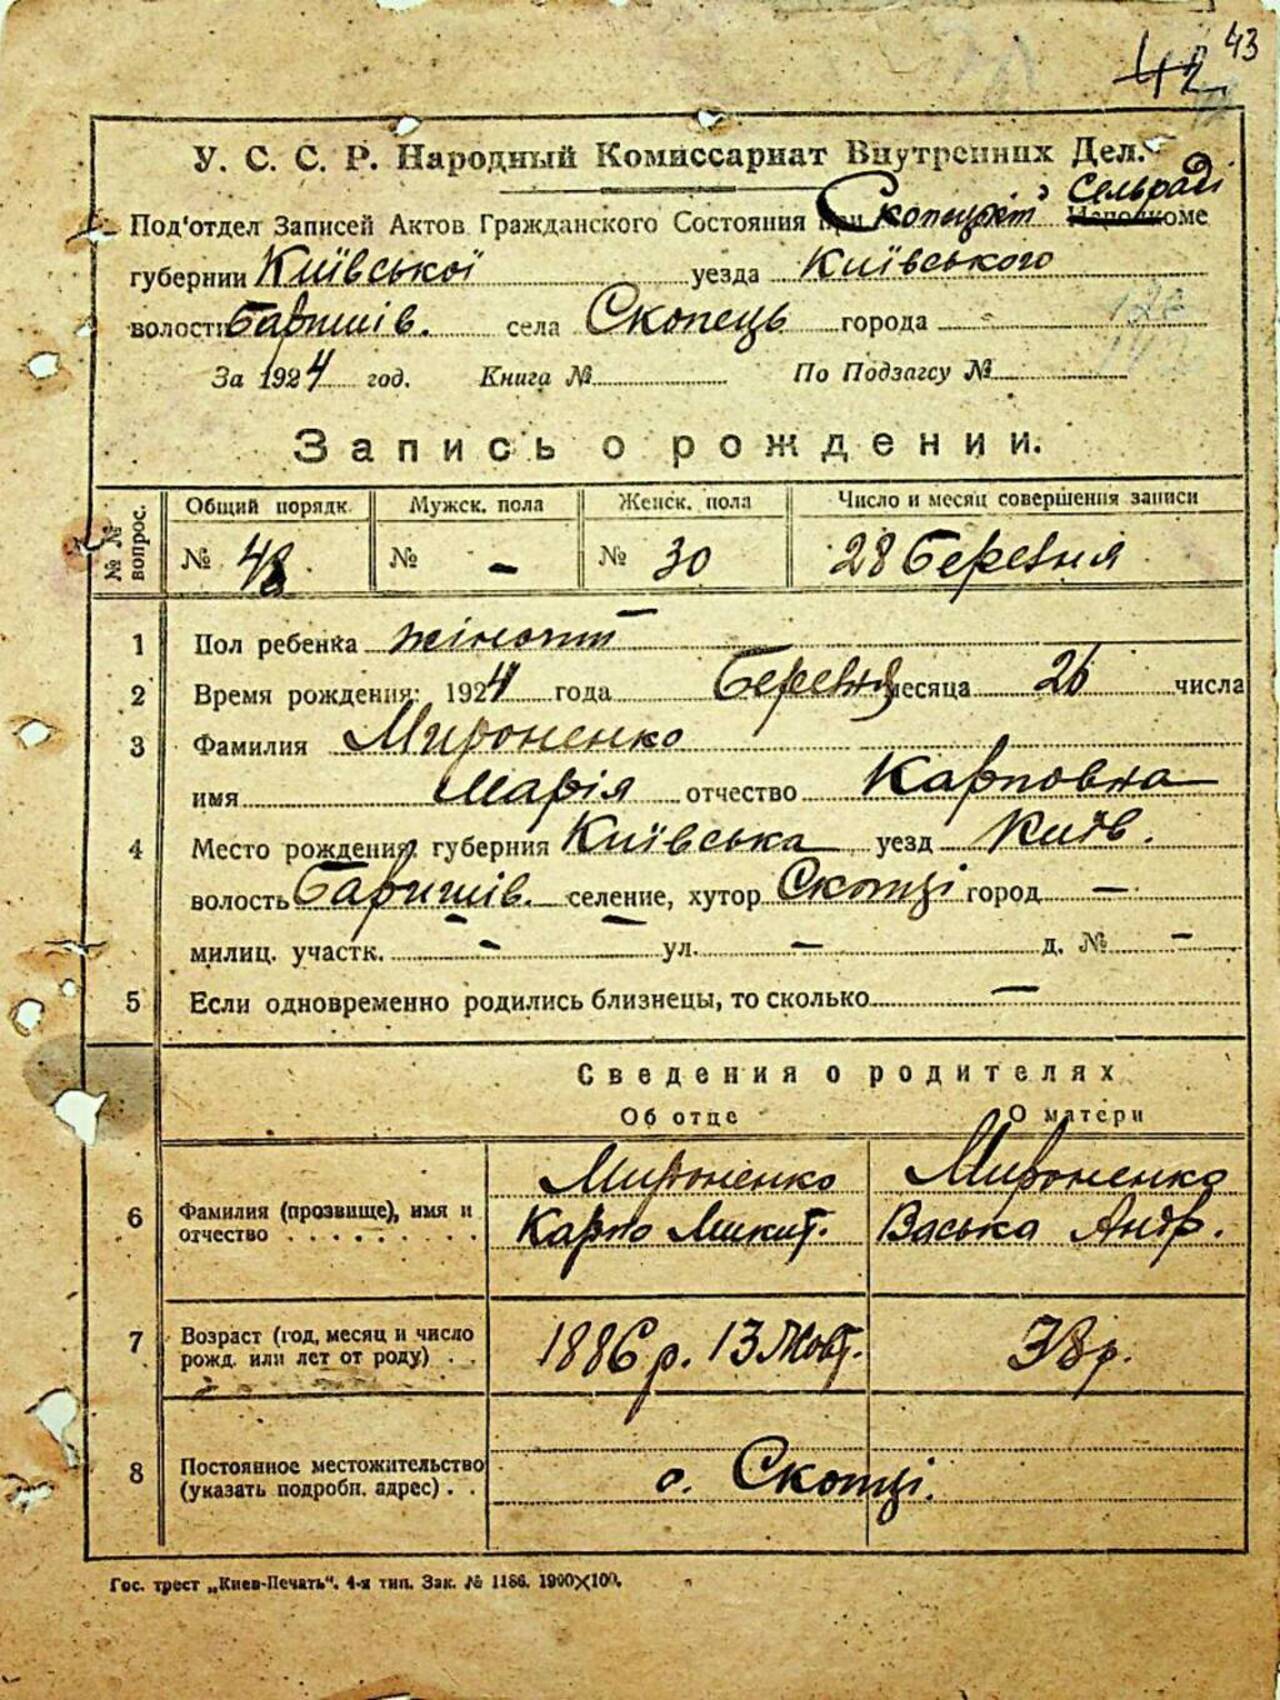 43
42
У. С. С. Р. Народный Комиссариат Внутренних Дел.
Под'отдел Записей Актов Гражданского Состояния при Скопецкій Сельраді Исполкоме
губернии Київської уезда Київського
волости Баришів. села Скопець города
За 1924 год. Книга № По Подзагсу №
Запись о рождении.
№№ вопрос. Общий порядк. Мужск. пола Женск. пола Число и месяц совершения записи
№ 48 № - № 30 28 Березня
1 Пол ребенка жіноч
2 Время рождения: 1924 года Березня месяца 26 числа
3 Фамилия Мироненко
имя Марія отчество Карповна
4 Место рождения: губерния Київська уезд Київ.
волость Баришів. селение, хутор Скопці город —
милиц. участк. - ул. - д. № -
5 Если одновременно родились близнецы, то сколько —
Сведения о родителях
Об отце О матери
Мироненко Мироненко
6 Фамилия (прозвище), имя и отчество Карпо Микит. Васька Андр.
7 Возраст (год, месяц и число рожд. или лет от роду) 1886 р. 13 Жовт. 38 р.
8 Постоянное местожительство (указать подробн. адрес) с. Скопці.
Гос. трест „Киев-Печать“. 4-я тип. Зак. № 1186. 1900×100.